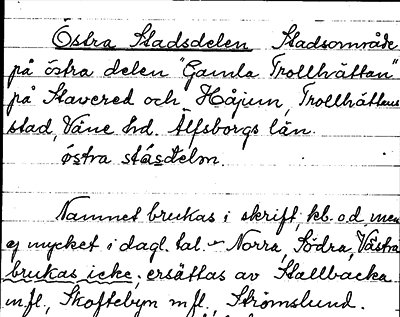 Östra Stadsdelen Stadsområde
på östra delen "Gamla Trollhättan"
på Stavered och Håjum, Trollhättans
stad, Väne hd. Älfsborgs län.
östra stásdelm.
Namnet brukas i skrift, kb. o.d, men
ej mycket i dagl. tal. - Norra, Södra, Västra
brukas icke, ersättas av Stallbacka
m.fl, Skoftebyn m.fl., Strömslund.